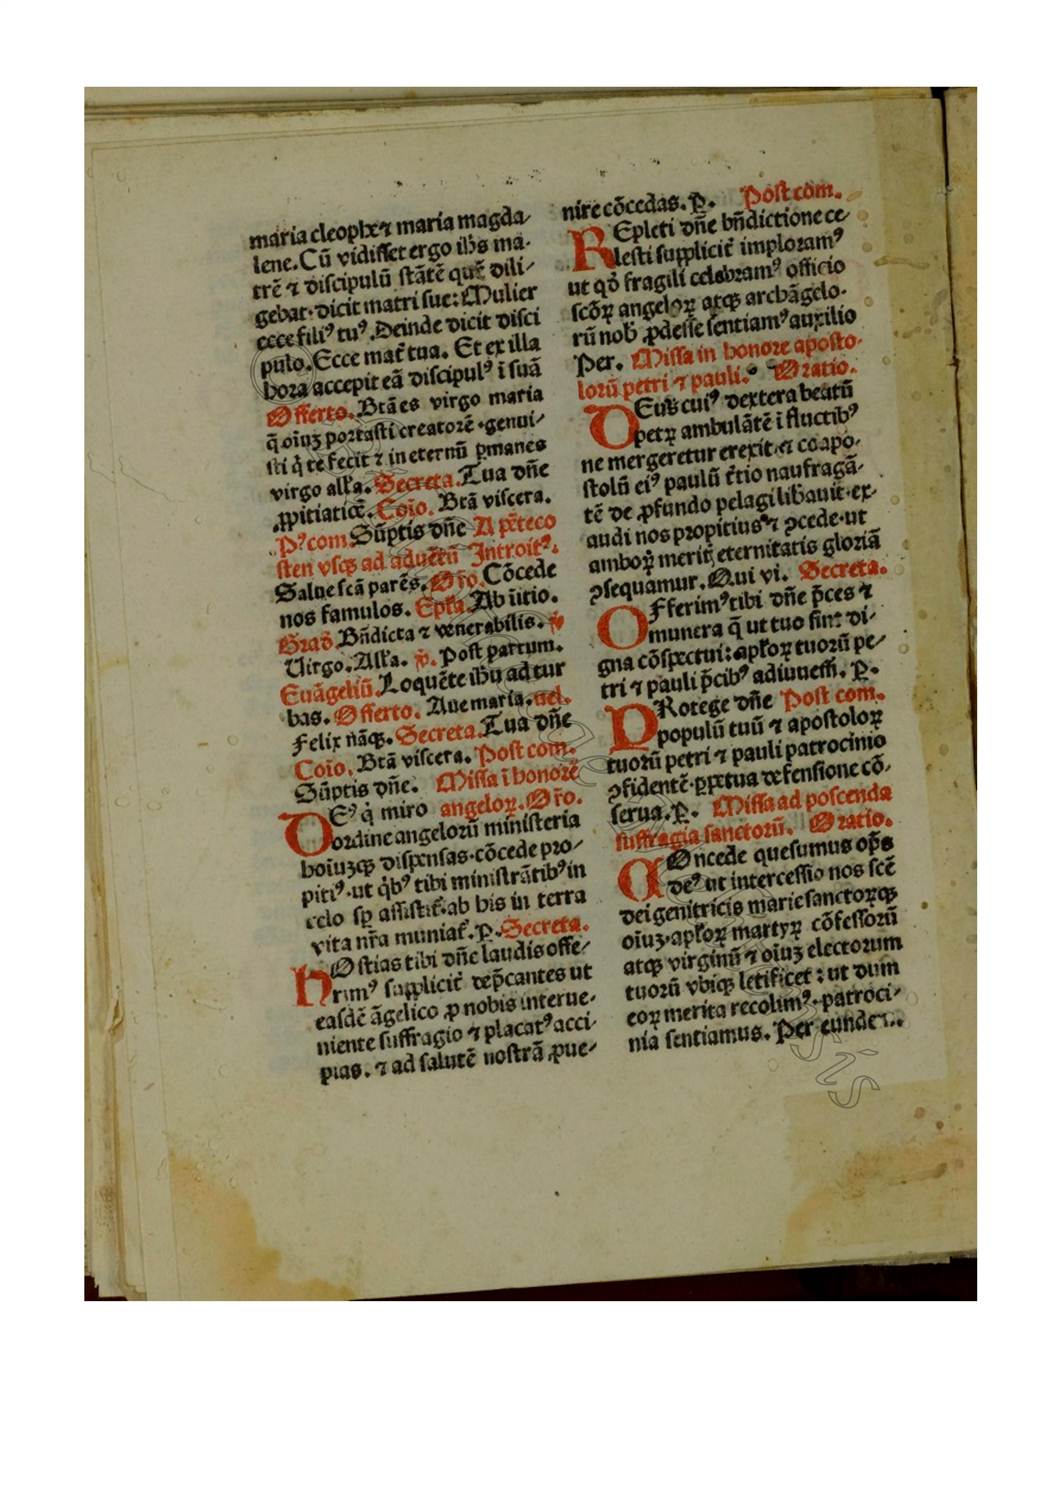 maria cleophe ⁊ maria magda-
lene. Cū vidisset ergo ihs ma-
trē ⁊ discipulū stātē quē dili-
gebat. dicit matri sue: Mulier
ecce filiꝰ tuꝰ. Deinde dicit disci
pulo. Ecce mat̄ tua. Et ex illa
hora accepit eā discipulꝰ ī suā
Offerto. Btā es virgo maria
q̄ oīuꝫ portasti creatorē. genui-
sti q̇ te fecit ⁊ in eternū ꝑmanes
virgo all'a. Secreta. Tua dn̄e
ꝓpitiatiōe. Coīo. Btā viscera.
Pꝰcom. Sūptis dn̄e A pēteco
sten vsqꝫ ad aduētū Introitꝰ.
Salue scā parēs. Or̄o. Cōcede
nos famulos. Ep̄la. Ab īitio.
Grad̄ Bn̄dicta ⁊ venerabilis. ℣
Uirgo. All'a. ℣. Post partum.
Euāgeliū. Loquēte ihū ad tur
bas. Offerto. Aue maria. uel.
Felix nāqꝫ. Secreta. Tua dn̄e
Coīo. Btā viscera. Post com.
Sūptis dn̄e. Missa ī honorē
DEꝰ q̇ miro angeloꝝ. Or̄o.
ordine angelorū ministeria
hoīuꝫqꝫ dispensas. cōcede pro-
pitiꝰ. ut q̇bꝰ tibi ministrātibꝰ in
celo sꝑ assistit̄. ab his in terra
vita nr̄a muniat̄. P. Secreta.
HOstias tibi dn̄e laudis offe-
rimꝰ supplicit̄ dep̄cantes ut
easdē āgelico ꝓ nobis interue-
niente suffragio ⁊ placatꝰ acci-
pias. ⁊ ad salutē nostrā ꝓue-
nire cōcedas. P. Post com.
REpleti dn̄e bn̄dictione ce-
lesti supplicit̄ imploramꝰ
ut qd̄ fragili celebramꝰ officio
scōꝝ angeloꝝ atqꝫ archāgelo-
rū nob̄ ꝓdesse sentiamꝰ auxilio
Per. Missa in honore aposto-
lorū petri ⁊ pauli. Oratio.
DEus cuiꝰ dextera beatū
petꝝ ambulātē ī fluctibꝰ
ne mergeretur erexit. et coapo-
stolū eiꝰ paulū t̄tio naufragā-
tē de ꝓfundo pelagi libauit. ex-
audi nos propitius ⁊ ꝯcede. ut
amboꝝ merit̄ eternitatis gloriā
ꝯsequamur. Qui vi. Secreta.
OFferimꝰ tibi dn̄e p̄ces ⁊
munera q̄ ut tuo sint di-
gna cōspectui: apl'oꝝ tuorū pe-
tri ⁊ pauli p̄cibꝰ adiuuem̄. P.
PRotege dn̄e Post com.
populū tuū ⁊ apostoloꝝ
tuorū petri ⁊ pauli patrocinio
ꝯfidentē. ꝑpetua defensione cō-
serua. P. Missa ad poscenda
suffragia sanctorū. Oratio.
COncede quesumus op̄s
deꝰ ut intercessio nos scē
dei genitricis marie sanctoꝝqꝫ
oīuꝫ. apl'oꝝ martyꝝ cōfessorū
atqꝫ virginū ⁊ oīuꝫ electorum
tuorū vbiqꝫ letificet: ut dum
eoꝝ merita recolimꝰ. patroci-
nia sentiamus. Per eundem.